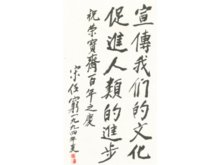 宣傳我们的文化
促進人類的進步
祝荣寶齋百年之慶
宋任窮一九九四年夏